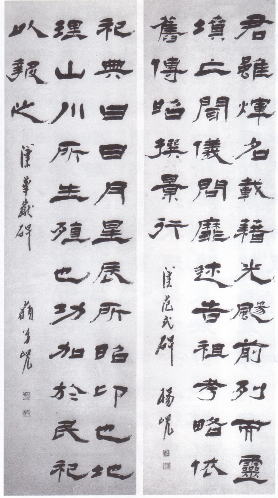 君雖煇名載藉光颺前列而靈
墳亡聞儀問靡述告祖考略依
舊傳昭撰景行
漢范式碑 楊峴
祀典曰日月星辰所昭卬也地
理山川所生殖也功加於民祀
以報之
漢華嶽碑 藐翁峴